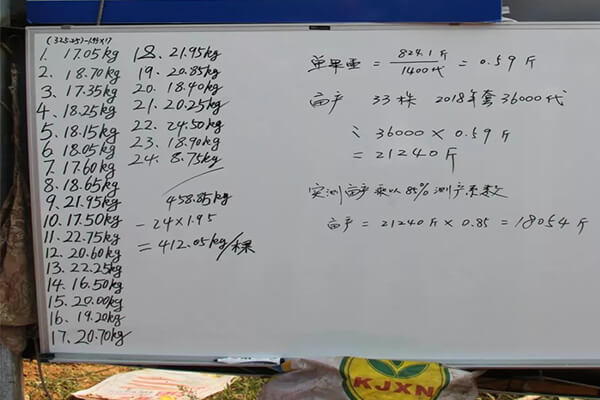 (325.25)-1.95×17
1. 17.05kg
2. 18.70kg
3. 17.35kg
4. 18.25kg
5. 18.15kg
6. 18.05kg
7. 17.60kg
8. 18.65kg
9. 21.95kg
10. 17.50kg
11. 22.75kg
12. 20.60kg
13. 22.25kg
14. 16.50kg
15. 20.00kg
16. 19.20kg
17. 20.70kg
18. 21.95kg
19. 20.85kg
20. 18.40kg
21. 20.25kg
22. 24.50kg
23. 18.90kg
24. 8.75kg
458.85kg
- 24×1.95
= 412.05kg/棵
单果重 = 824.1斤/1400代 = 0.59斤
亩产 33株 2018年套36000代
∴ 36000×0.59斤
= 21240斤
实测亩产乘以85%测产系数
亩产 = 21240斤×0.85 = 18054斤
KJXN